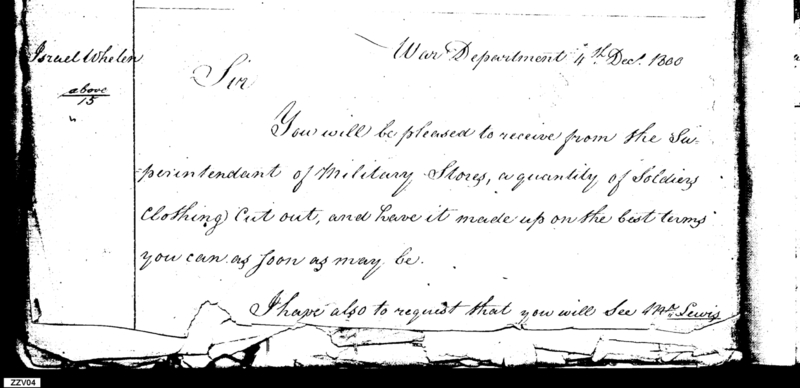 Israel Whelen
above
15
War Department 4th. Decr. 1800
Sir
You will be pleased to receive from the Su-
perintendant of Military Stores, a quantity of Soldiers
Clothing Cut out, and have it made up on the best terms
you can as soon as may be.
I have also to request that you will See Mr. Lewis
ZZV04